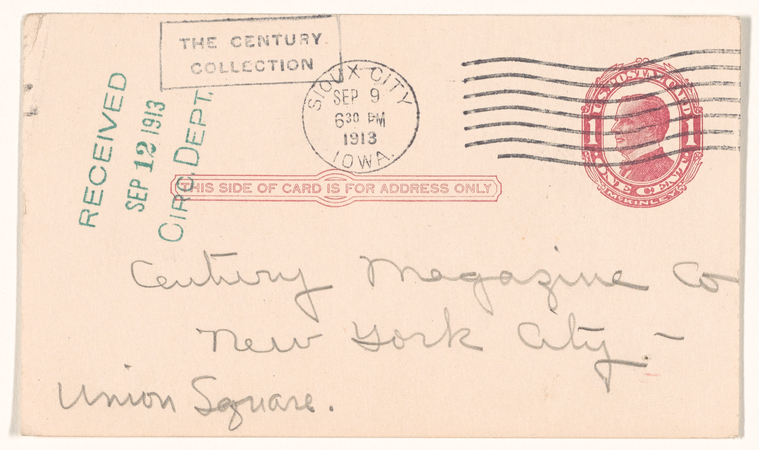 THE CENTURY
COLLECTION
RECEIVED
SEP 12 1913
CIRC. DEPT.
SIOUX CITY
SEP 9
6 30 PM
1913
IOWA.
U.S. POSTAL CARD
1 1
ONE CENT
McKINLEY
THIS SIDE OF CARD IS FOR ADDRESS ONLY
Century Magazine Co
New York City.-
Union Square.